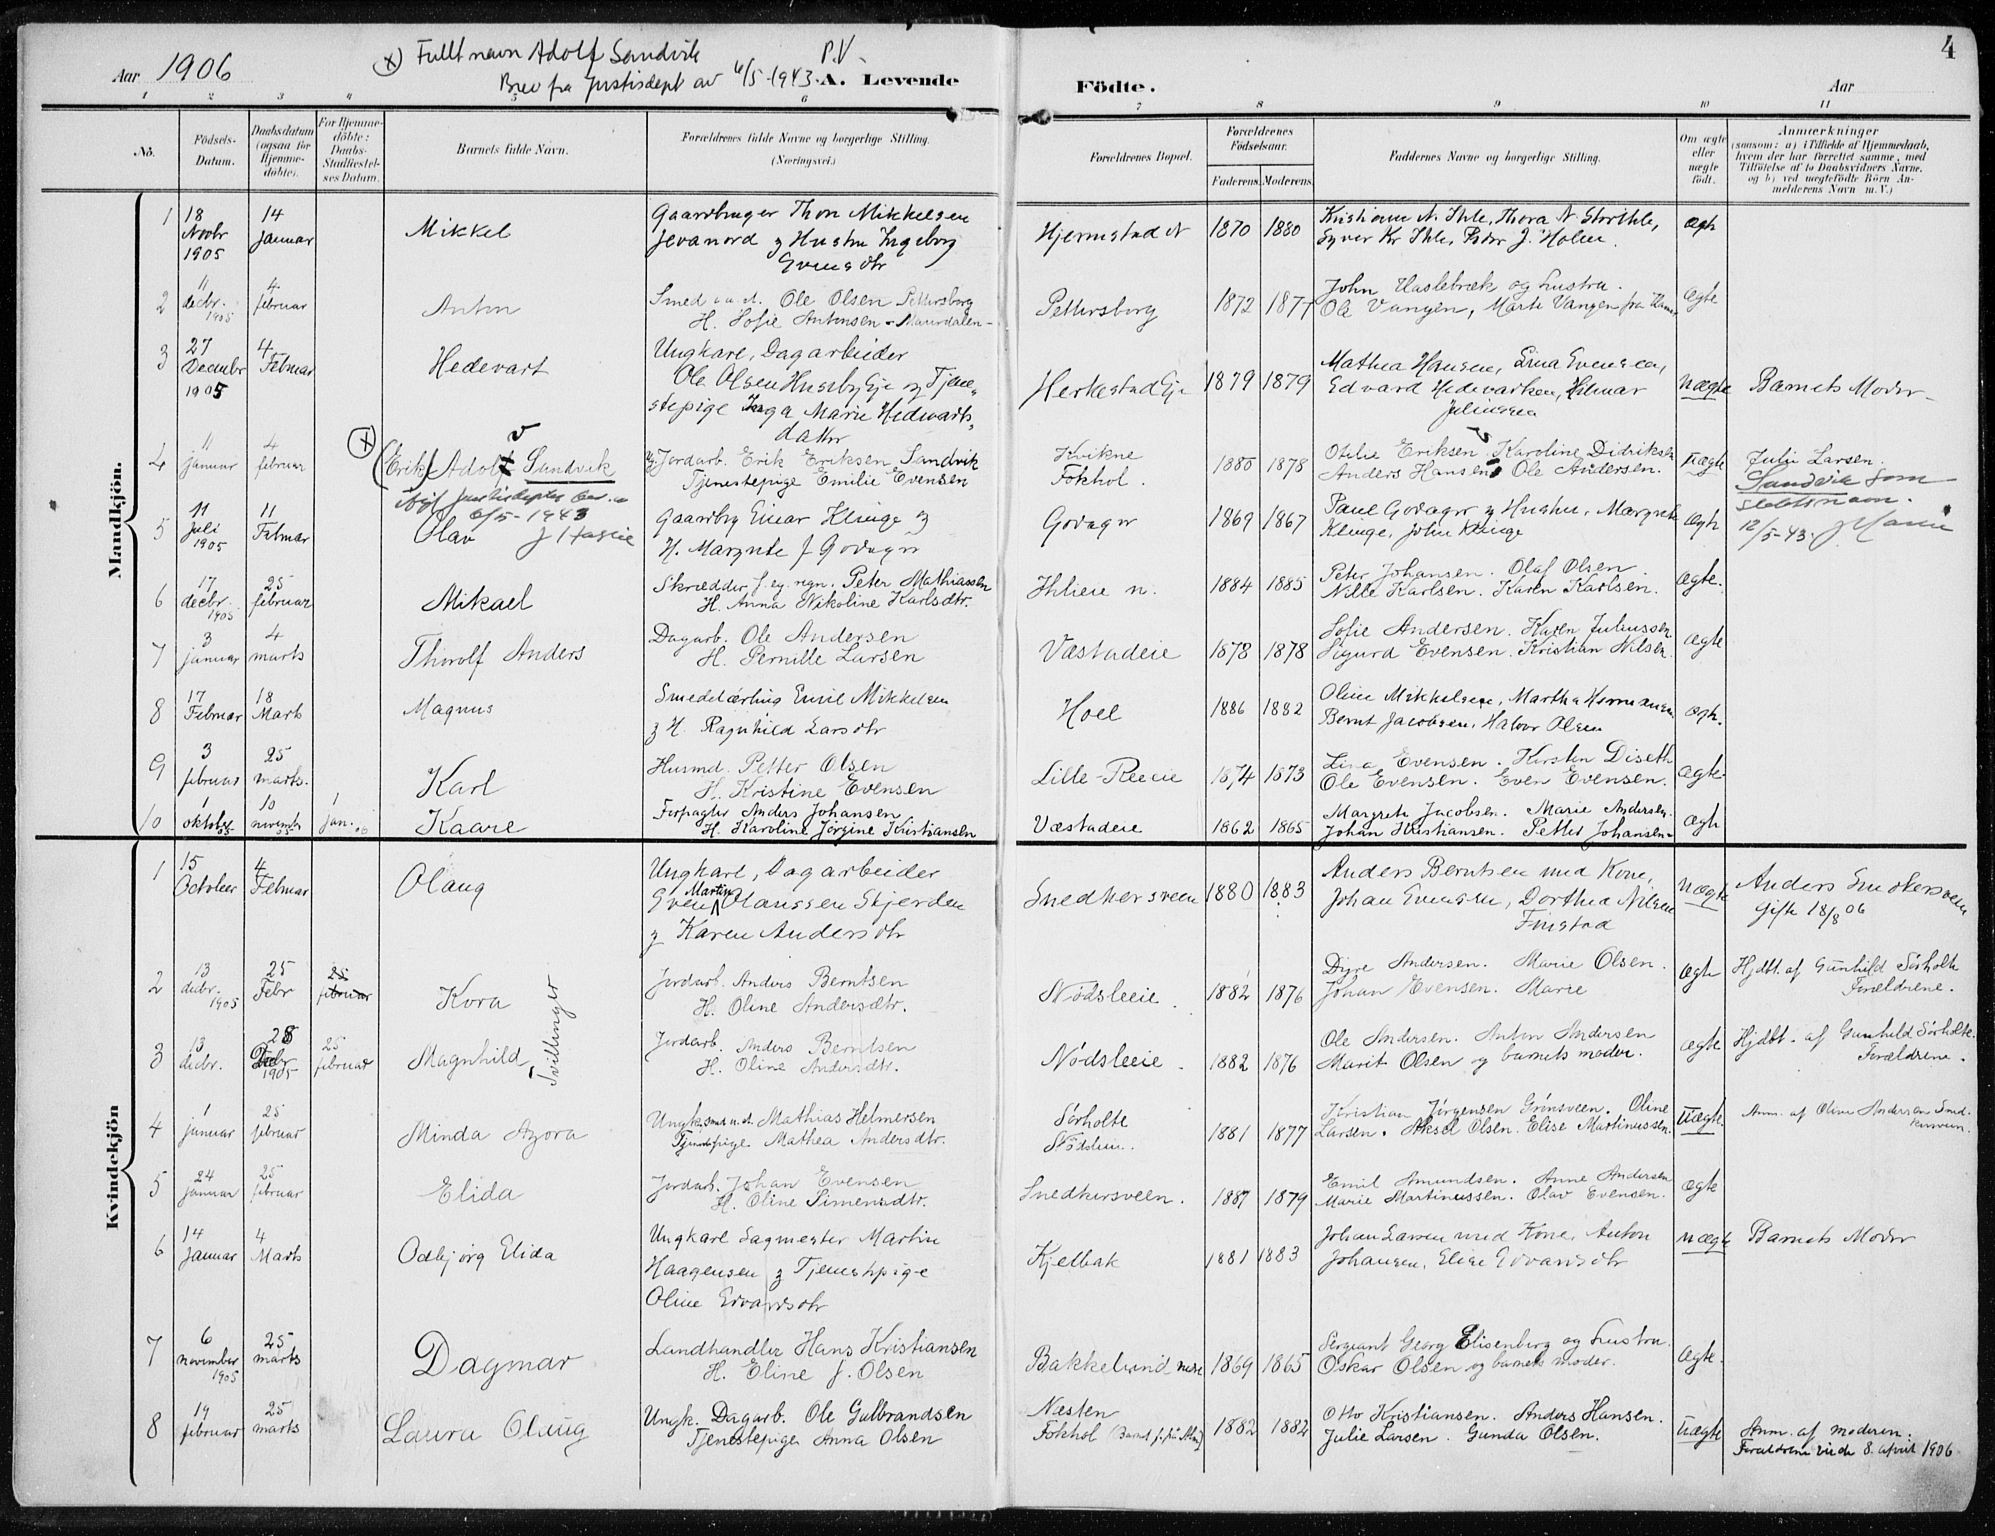 4
Aar 1906
(x) Fullt navn Adolf Sandvik P.V.
Brev fra Justisdept av 6/5-1943.
A. Levende Fødte.
Aar
1 2 3 4 5 6 7 8 9 10 11
No.
Födsels-Datum.
Daabsdatum (ogsaa for Hjemme-döbte).
For Hjemme-döbte: Daabs-Stadfæstel-ses Datum.
Barnets fulde Navn.
Forældrenes fulde Navne og borgerlige Stilling. (Næringsvei.)
Forældrenes Bopæl.
Forældrenes Födselsaar.
Faderens. Moderens.
Faddernes Navne og borgerlige Stilling.
Om ægte eller uægte födt.
Anmærkninger
(saasom: a) i Tilfælde af Hjemmedaab,
hvem der har forrettet samme, med
Tilföielse af to Daabsvidners Navne,
og b) ved uægtefödte Börn An-
melderens Navn m. V.)
Mandkjön.
1 18 Novbr 1905 14 Januar Mikkel
Gaardbruger Thon Mikkelsen
Jevanord og Hustru Ingeborg
Evensdtr
Hjermstad N 1870 1880
Kristiane N. Ihle, Thora N. Storihle,
Syver Kr Ihle, Peder J. Holen.
Ægte
2 11 decbr. 1905 4 februar Anton
Smed Ole Olsen Pettersborg
H. Sofie Antonsen - Maurdalen -
Pettersborg 1872 1877
John Haslebræk og hustru.
Ole Vangen, Marte Vangen fra
Ægte
3 27 Decembr 1905 4 Februar Hedevart
Ungkarl, Dagarbeider
Ole Olsen Husebyeje og Tjene-
stepige Inga Marie Hedevarts-
datter
Herkestad Eje 1879 1879
Mathea Hansen, Lina Evensen,
Edvard Hedevartsen, Hilmar
Juliussen
Uægte Barnets Moder
4 11 januar 4 februar (x) (Erik) Adolf Sandvik
6/5-1943
Ug. Jordarb. Erik Eriksen Sandvik
Tjenestepige Emilie Evensen
Kvikne
Fokhol. 1880 1878
Otilie Eriksen. Karoline Didriksen
Anders Hansen. Ole Andersen.
Uægte Julie Larsen.
Sandvik som
slektsnavn.
12/5-43.
5 11 Juli 1905 11 Februar Olav
Gaardbr Einar Klinge og
H. Margrete f Godager
Godager 1869 1867
Paul Godager og Hustru, Margrete
Klinge, John Klinge
Ægte
6 17 decbr. 1905 25 februar Mikael
Skrædder f. eg. regn. Peter Mathiassen
H. Anna Nikoline Karlsdtr.
Ihleie n. 1884 1885
Peter Johansen. Olaf Olsen.
Nille Karlsen. Karen Karlsen.
Ægte.
7 3 januar 4 marts Thorolf Anders
Dagarb. Ole Andersen
H. Pernille Larsen
Væstadeie 1878 1878
Sofie Andersen. Karen Juliussen.
Sigurd Evensen. Kristian Nilsen.
Ægte
8 17 Februar 18 Marts Magnus
Smedelærling Emil Mikkelsen
og H. Ragnhild Larsdtr
Hoel 1886 1882
Oline Mikkelsen, Martha Hermansen
Bernt Jacobsen, Halvor Olsen
Ægte.
9 3 februar 25 marts. Karl
Husmd. Petter Olsen
H. Kristine Evensen
Lille-Reeie 1874 1873
Lina Evensen. Kirsten Diseth
Ole Evensen. Even Evensen.
Ægte.
10 1 oktober 05 10 november 05 1 jan. 06 Kaare
Forpagter Anders Johansen
H. Karoline Jørgine Kristiansen
Væstadeie 1862 1865
Margrete Jacobsen. Marie Andersen.
Johan Kristiansen. Petter Johansen.
Ægte
Kvindekjön
1 15 October 4 Februar Olaug
Ungkarl, Dagarbeider
Even Martin Olaussen Skjerden
og Karen Andersdtr
Snedkersveen 1880 1883
Anders Berntsen med Kone,
Johan Evensen, Dorthea Nilsen
Finstad
Uægte Anders Snedkersveen
Gifte 18/8 06
2 13 decbr. 1905 25 Febr 25 februar Kora
Jordarb. Anders Berntsen
H. Oline Andersdtr.
Nødsleeie. 1882 1876
Dyre Andersen. Marie Olsen.
Johan Evensen. Marie
Ægte Hjdbt. af Gunhild Sørholte
Forældrene.
Tvillinger
3 13 decbr. 28 Decbr 1905 25 februar Magnhild
Jordarb. Anders Berntsen
H. Oline Andersdtr.
Nødsleeie. 1882 1876
Ole Andersen. Anton Andersen
Marit Olsen og barnets moder.
Ægte Hjdbt. af Gunhild Sørholte.
Forældrene.
4 1 januar 25 februar Minda Azora
Ungk. Smed Mathias Helmersen
Tjenestepige Mathea Andersdtr.
Sørholte
Nødsleie. 1881 1877
Kristian Jørgensen Grønsveen. Oline
Larsen. Aksel Olsen. Elise Martinussen.
Uægte. Anm. af Oline Andersen Sned-
kersveen.
5 24 januar 25 februar Elida
Jordarb. Johan Evensen
H. Oline Simensdtr.
Snedkersveen. 1887 1879
Emil Amundsen. Anne Andersen
Marie Martinussen. Olav Evensen.
Ægte
6 14 Januar 4 Marts Odbjørg Elida
Ungkarl Sagmester Martin
Haagensen og Tjenestepige
Oline Edvardsdtr
Kjelbak 1881 1883
Johan Larsen med Kone, Anton
Johansen, Elise Edvardsdtr
Uægte Barnets Moder
7 6 november 1905 25 marts Dagmar
Landhandler Hans Kristiansen
H. Eline J. Olsen
Bakkelund nedre 1869 1865
Sergiant Georg Elisenberg og hustru.
Oskar Olsen og barnets moder.
Ægte.
8 19 februar 25 marts Laura Olaug
Ungk. Dagarb. Ole Gulbrandsen
Tjenestepige Anna Olsen
Næsten
Fokhol 1882 1882
Otto Kristiansen. Anders Hansen.
Julie Larsen. Gunda Olsen.
Uægte Anm. af moderen.
Forældrene viede 8. april 1906.